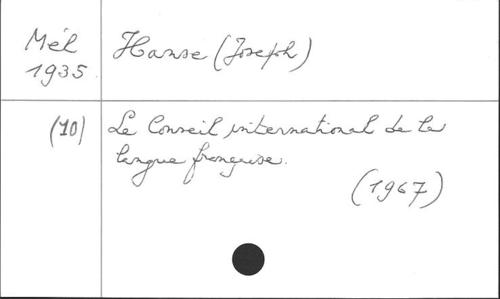 Mél
1935
Hanse (Joseph)
(10)
Le Conseil international de la
langue française.
(1967)